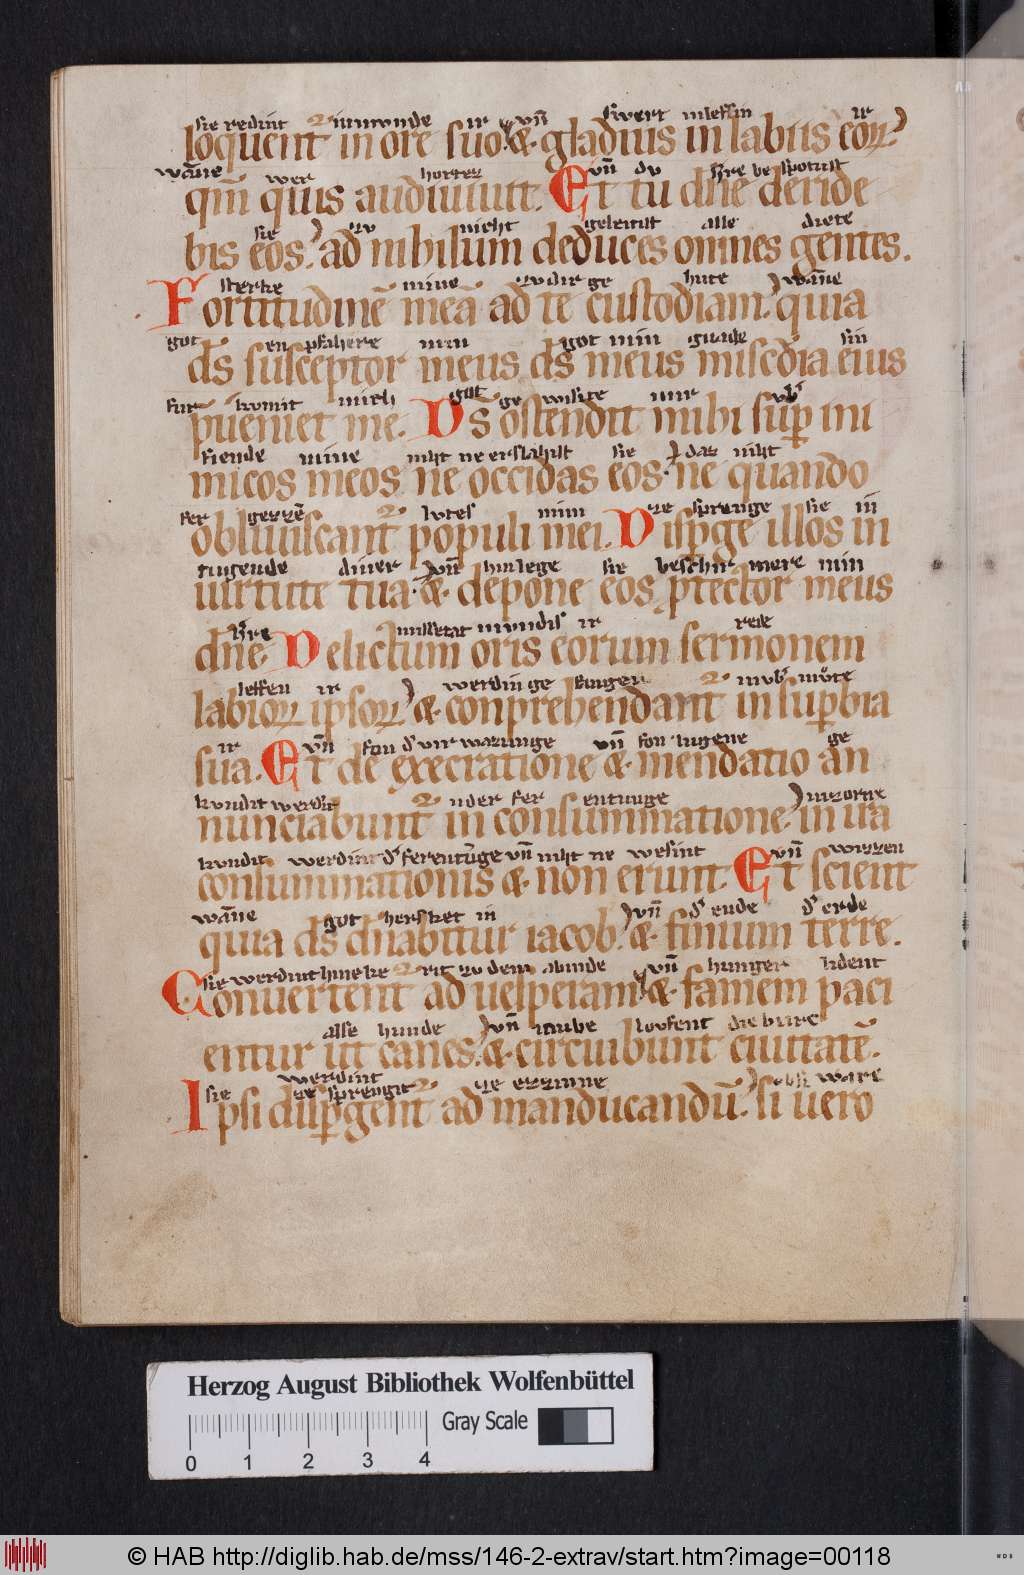 sie redint imMunde ir vñ swert in leffin ir
loquent᷑ in ore suo. & gladius in labiis eoꝝ.
wāne wer hortez vñ dv h̄re be spotist
qm̄ quis audiuit. Et tu dn̄e deride
sie zv nieht geleitist alle diete
bis eos. ad nihilum deduces omnes gentes.
sterke mine zv dir ge hute wāne
Fortitudinē meā ad te custodiam. quia
got en pfahere min got min gnade sin
ds̄ susceptor meus ds̄ meus misc̄dia eius
fur kvmit mich got ge wisite mir vb̄
p̄ueniet me. Ds̄ ostendit mihi suꝑ ini
fiende mine niht ne erslahist sie daz niht
micos meos ne occidas eos. ne quando
fer gezzē lvtes min ze sprenge sie in
obliuiscant᷑ populi mei. Disꝑge illos in
tugende diner vñ hin lege sie beschir mere min
uirtute tua. & depone eos ꝓtector meus
h̄re missetat mvndis ir rede
dn̄e. Delictum oris eorum sermonem
leffen ir werdin ge fangen in vb̄ mv̊te
labioꝝ ipsoꝝ. & conprehendant᷑ in suꝑbia
ir vñ fon d̄ vir wazunge vñ fon lugene ge
sua. Et de execratione & mendatio an
kvndit werdit in der fer entunge in zorne
nunciabunt᷑ in consummatione. in ira
kvndit werdint d̄ ferentūge vñ niht ne wesint vñ wizzen
consummationis & non erunt. Et scient
wāne got herscket in vñ d̄ ende d̄ erde
quia ds̄ dn̄abitur iacob. & finium terre.
sie werdint hine ke rit zv dem abinde vñ hunger lident
Conuertent᷑ ad uesperam. & famem paci
alse hunde vñ umbe lovfent die burc
entur ut canes. & circuibunt ciuitatē.
sie werdint ze sprengit ze ezzinne obsi ware
Ipsi disꝑgent᷑ ad manducandū. si uero
Herzog August Bibliothek Wolfenbüttel
Gray Scale
0 1 2 3 4
© HAB http://diglib.hab.de/mss/146-2-extrav/start.htm?image=00118